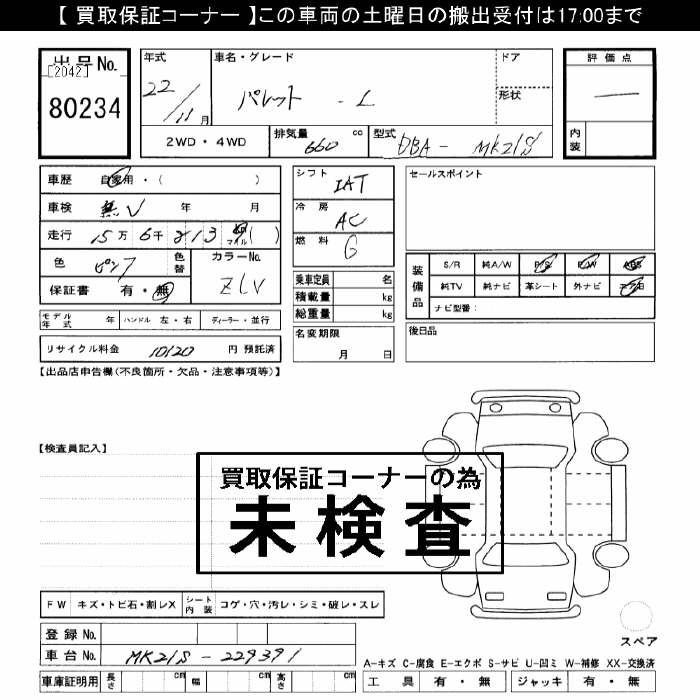 【 買取保証コーナー 】この車両の土曜日の搬出受付は17:00まで
出品No.
[2042]
80234
年式
22/11月
車名・グレード
パレット - L
ドア
形状
評価点
—
内装
2WD・4WD
排気量 660 cc
型式 DBA - MK21S
車歴 自家用・( )
車検 無し 年 月
走行 15万6千213 km マイル ( )
色 ピンク 色替
カラーNo. ZLV
保証書 有・無
モデル年式 年 ハンドル 左・右 ディーラー・並行
リサイクル料金 10120 円 預託済
シフト IAT
冷房 AC
燃料 G
乗車定員 名
積載量 kg
総重量 kg
名変期限
月 日
セールスポイント
装備品
S/R 純A/W P/S P/W ABS
純TV 純ナビ 革シート 外ナビ エアB
ナビ型番:
後日品
【出品店申告欄(不良箇所・欠品・注意事項等)】
【検査員記入】
買取保証コーナーの為
未検査
FW キズ・トビ石・割レX シート内装 コゲ・穴・汚レ・シミ・破レ・スレ
登録No.
車台No. MK21S - 229391
車庫証明用 長さ cm 幅 cm 高さ cm
スペア
A-キズ C-腐食 E-エクボ S-サビ U-凹ミ W-補修 XX-交換済
工具 有・無 ジャッキ 有・無